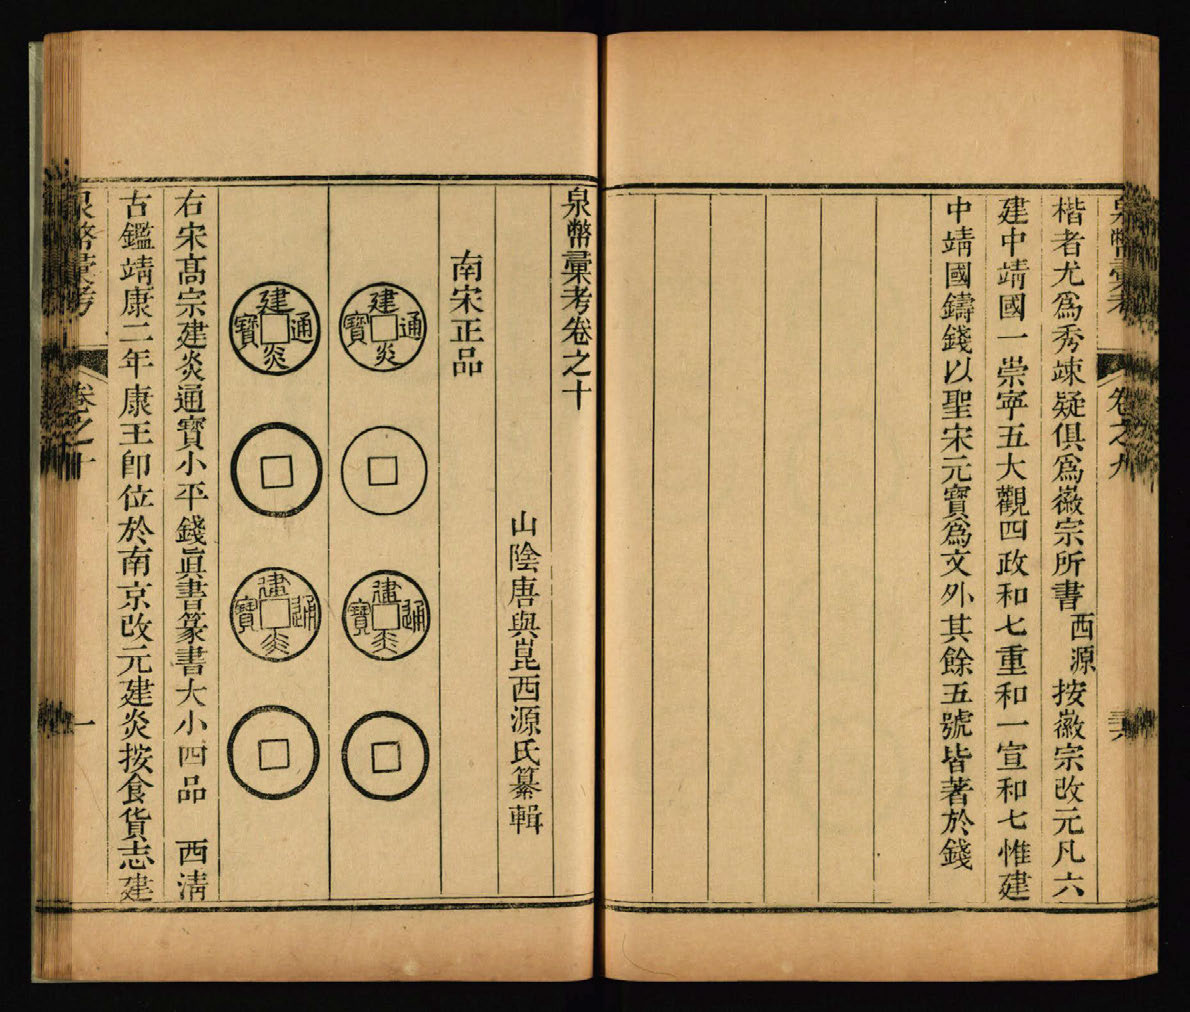 泉幣彙考
卷之九
三六
楷者尤爲秀竦疑俱爲徽宗所書 西源 按徽宗改元凡六
建中靖國一崇寧五大觀四政和七重和一宣和七惟建
中靖國鑄錢以聖宋元寶爲文外其餘五號皆著於錢
泉幣彙考卷之十
山陰唐與崑西源氏纂輯
南宋正品
建炎通寶
建炎通寶
建炎通寶
建炎通寶
右宋髙宗建炎通寶小平錢眞書篆書大小四品 西清
古鑑靖康二年康王卽位於南京改元建炎按食貨志建
泉幣彙考
卷之十
一